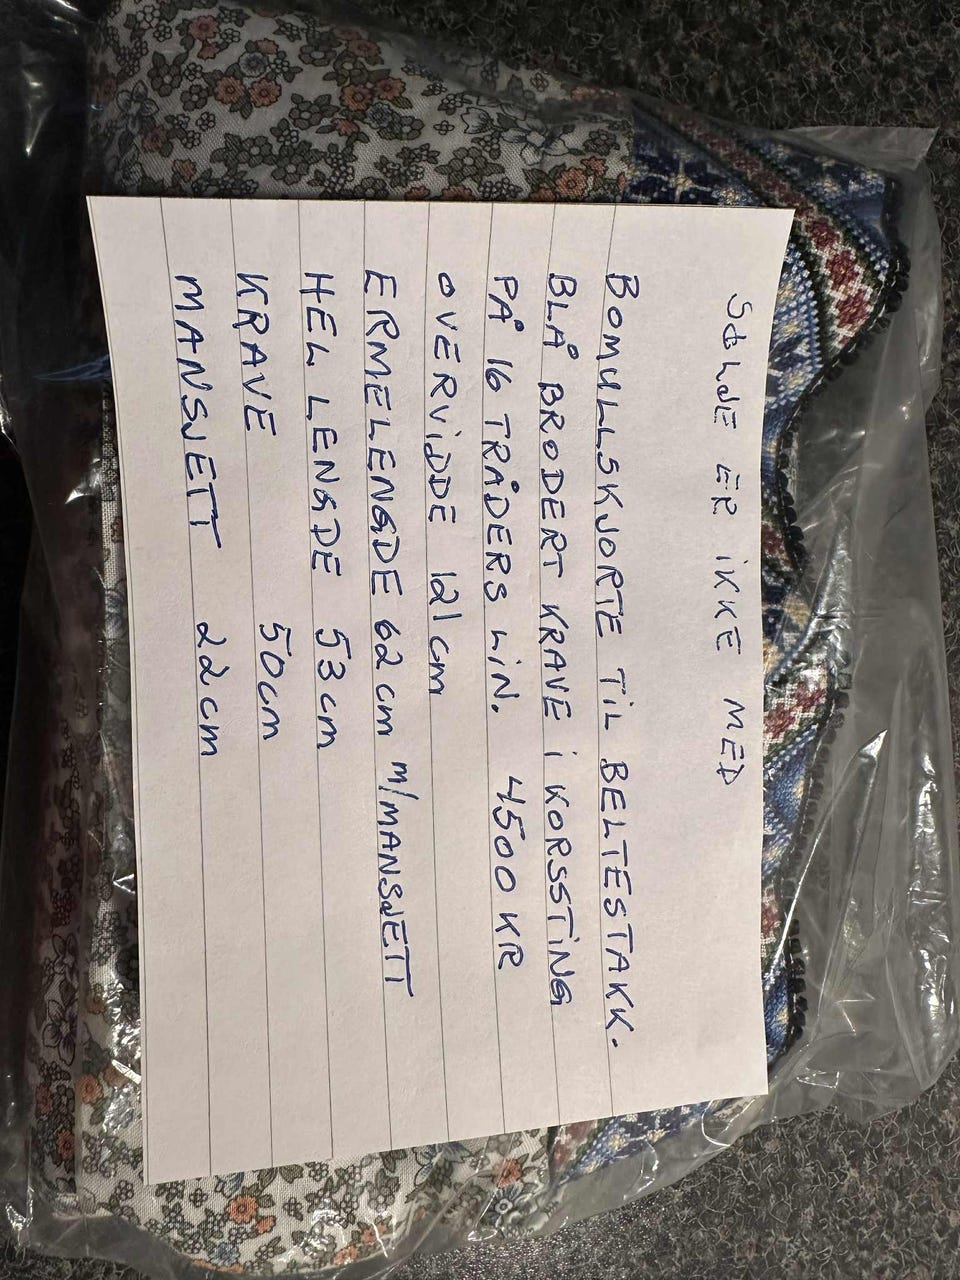 SØLJE ER IKKE MED
BOMULLSKJORTE TIL BELTESTAKK.
BLÅ BRODERT KRAVE I KORSSTING
PÅ 16 TRÅDERS LIN. 4500 KR
OVERVIDDE 121 cm
ERMELENGDE 62 cm m/MANSJETT
HEL LENGDE 53 cm
KRAVE 50 cm
MANSJETT 22 cm